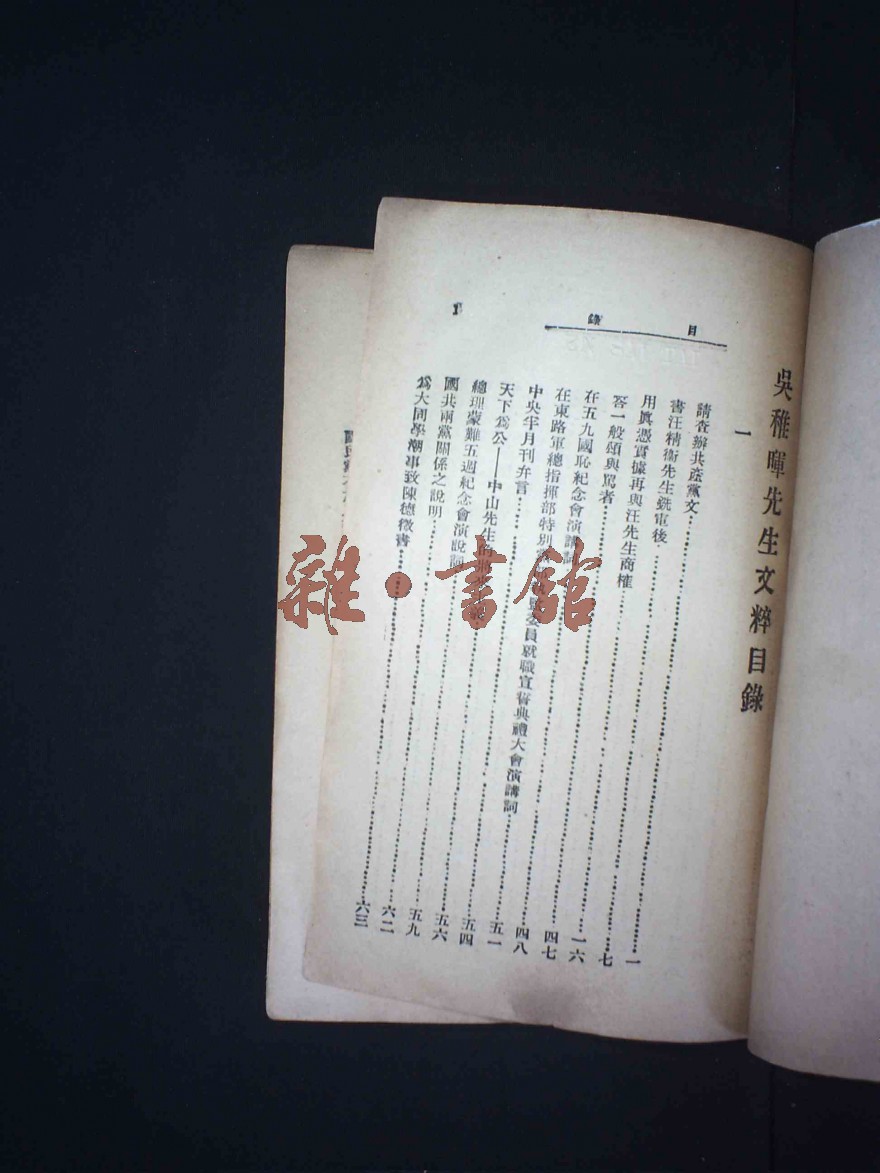 吳稚暉先生文粹目錄
目 錄 1
一
請查辦共產黨文 一
書汪精衞先生銑電後 七
用眞憑實據再與汪先生商榷 一六
答一般頌與罵者 四七
在五九國恥紀念會演講詞 四八
在東路軍總指揮部特別委員就職宣誓典禮大會演講詞 五一
中央半月刊弁言 五四
天下爲公——中山先生 五六
總理蒙難五週紀念會演說詞 五九
國共兩黨關係之說明 六二
爲大同學潮事致陳德徵書 六三
國民黨
雜·書館